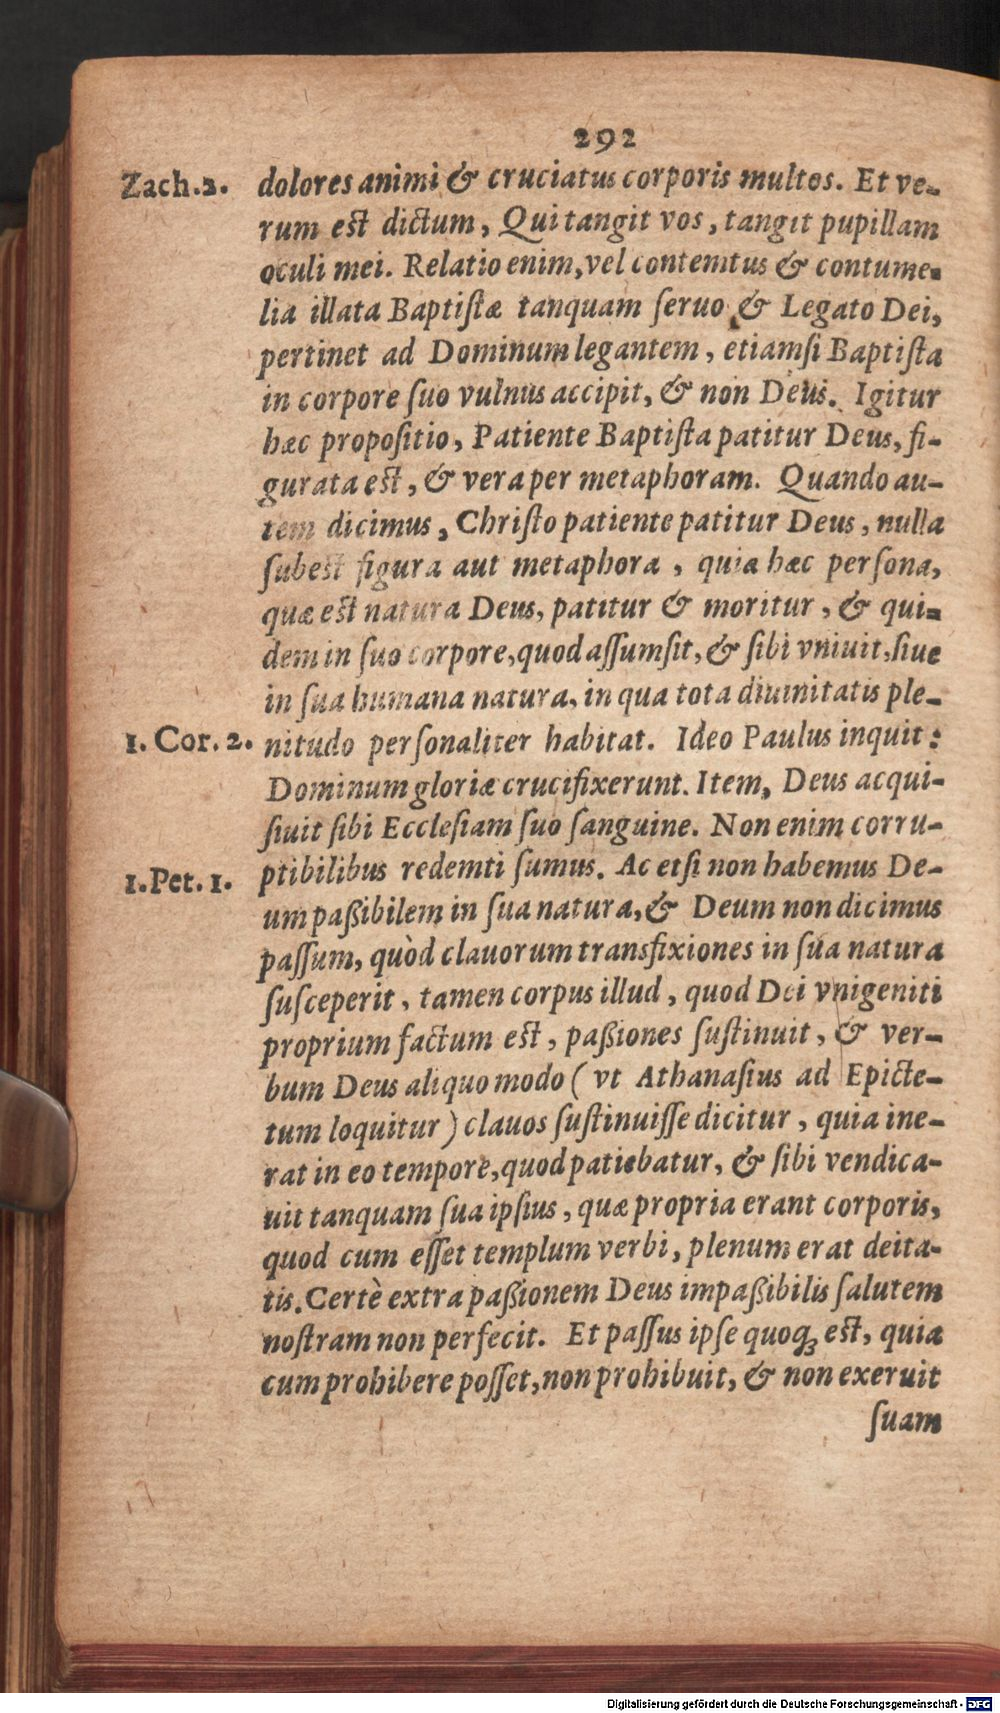 292
Zach.2. dolores animi & cruciatus corporis multos. Et ve-
rum est dictum, Qui tangit vos, tangit pupillam
oculi mei. Relatio enim, vel contemtus & contume-
lia illata Baptiſtæ tanquam ſeruo & Legato Dei,
pertinet ad Dominum legantem, etiamſi Baptiſta
in corpore ſuo vulnus accipit, & non Deus. Igitur
hæc propoſitio, Patiente Baptiſta patitur Deus, fi-
gurata est, & vera per metaphoram. Quando au-
tem dicimus, Chriſto patiente patitur Deus, nulla
ſubest figura aut metaphora, quia hæc perſona,
quæ est natura Deus, patitur & moritur, & qui-
dem in ſuo corpore, quod aſſumſit, & ſibi vniuit, ſiue
in ſua humana natura, in qua tota diuinitatis ple-
1. Cor. 2. nitudo perſonaliter habitat. Ideo Paulus inquit:
Dominum gloriæ crucifixerunt. Item, Deus acqui-
ſiuit ſibi Eccleſiam ſuo ſanguine. Non enim corru-
1.Pet. 1. ptibilibus redemti ſumus. Ac etſi non habemus De-
um paßibilem in ſua natura, & Deum non dicimus
paſſum, quòd clauorum transfixiones in ſua natura
ſuſceperit, tamen corpus illud, quod Dei vnigeniti
proprium factum est, paßiones ſuſtinuit, & ver-
bum Deus aliquo modo (vt Athanaſius ad Epicte-
tum loquitur) clauos ſuſtinuiſſe dicitur, quia ine-
rat in eo tempore, quod patiebatur, & ſibi vendica-
uit tanquam ſua ipſius, quæ propria erant corporis,
quod cum eſſet templum verbi, plenum erat deita-
tis. Certè extra paßionem Deus impaßibilis ſalutem
noſtram non perfecit. Et paſſus ipſe quoq; est, quia
cum prohibere poſſet, non prohibuit, & non exeruit
ſuam
Digitalisierung gefördert durch die Deutsche Forschungsgemeinschaft - DFG